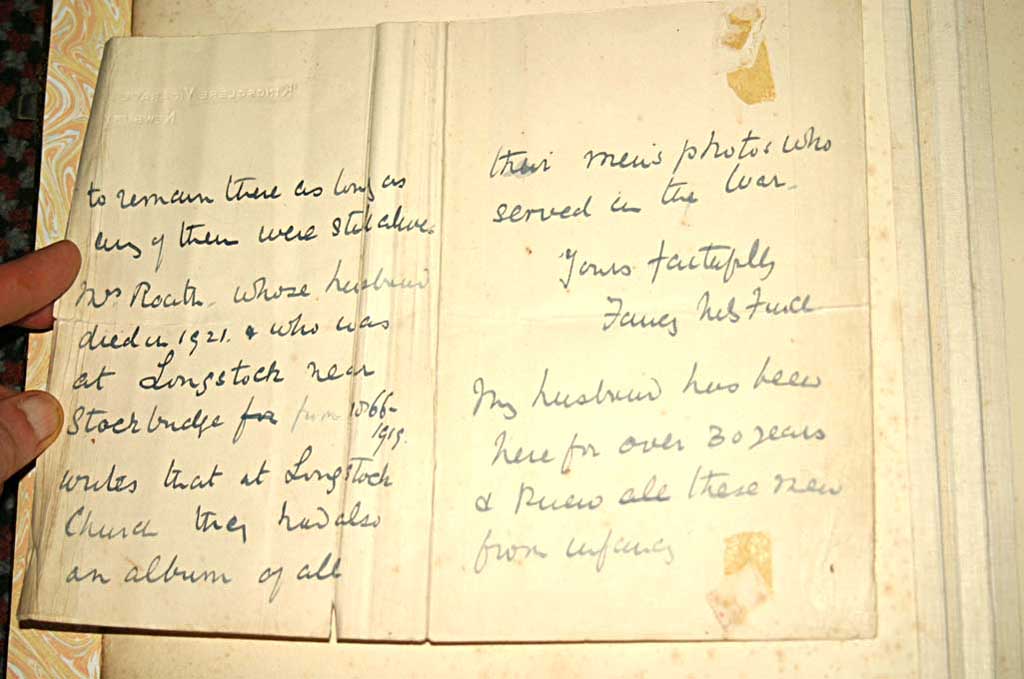 KINGSCLERE VICARAGE
NEWBURY
to remain there as long as
any of them were still alive.
Mrs Roath. whose husband
died in 1921. & who was
at Longstock near
Stockbridge for from 1866-
1919.
writes that at Longstock
Church they had also
an album of all
their men's photos who
served in the War.
Yours faithfully
My husband has been
here for over 30 years
& knew all these men
from infancy